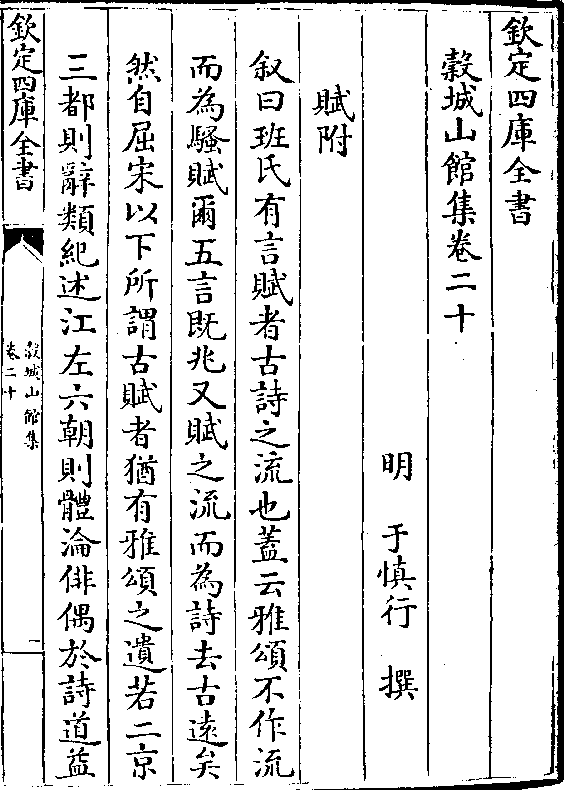 欽定四庫全書
穀城山館集卷二十
明 于慎行 撰
賦附
叙曰班氏有言賦者古詩之流也蓋云雅頌不作流
而為騷賦爾五言既兆又賦之流而為詩去古逺矣
然自屈宋以下所謂古賦者猶有雅頌之遺若二京
三都則辭類紀述江左六朝則體淪俳偶於詩道益
欽定四庫全書
穀城山館集
卷二十
一